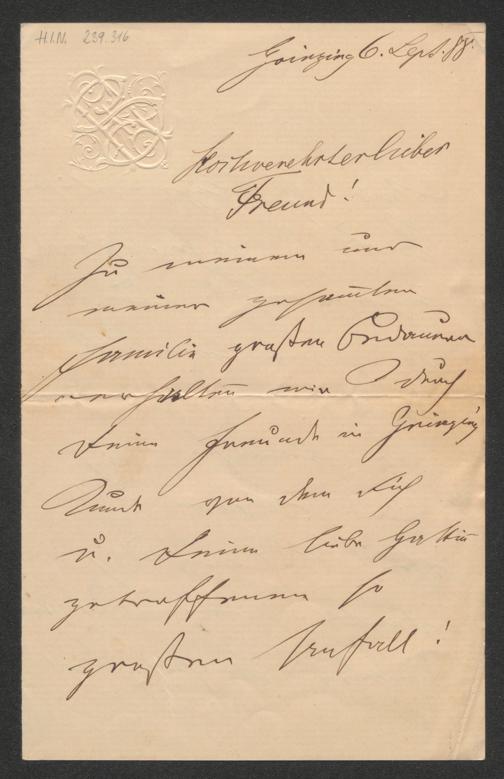 H.I.N. 239.316
Grinzing 6. Sept. 88.
Hochverehrter lieber
Freund!
Zu meinem und
meiner gesamten
Familie großen Bedauern
erhalten wir durch
Deine Freunde in Grinzing
Kunde von dem Dich
u. Deine liebe Gattin
getroffenen so
großen Unfall!